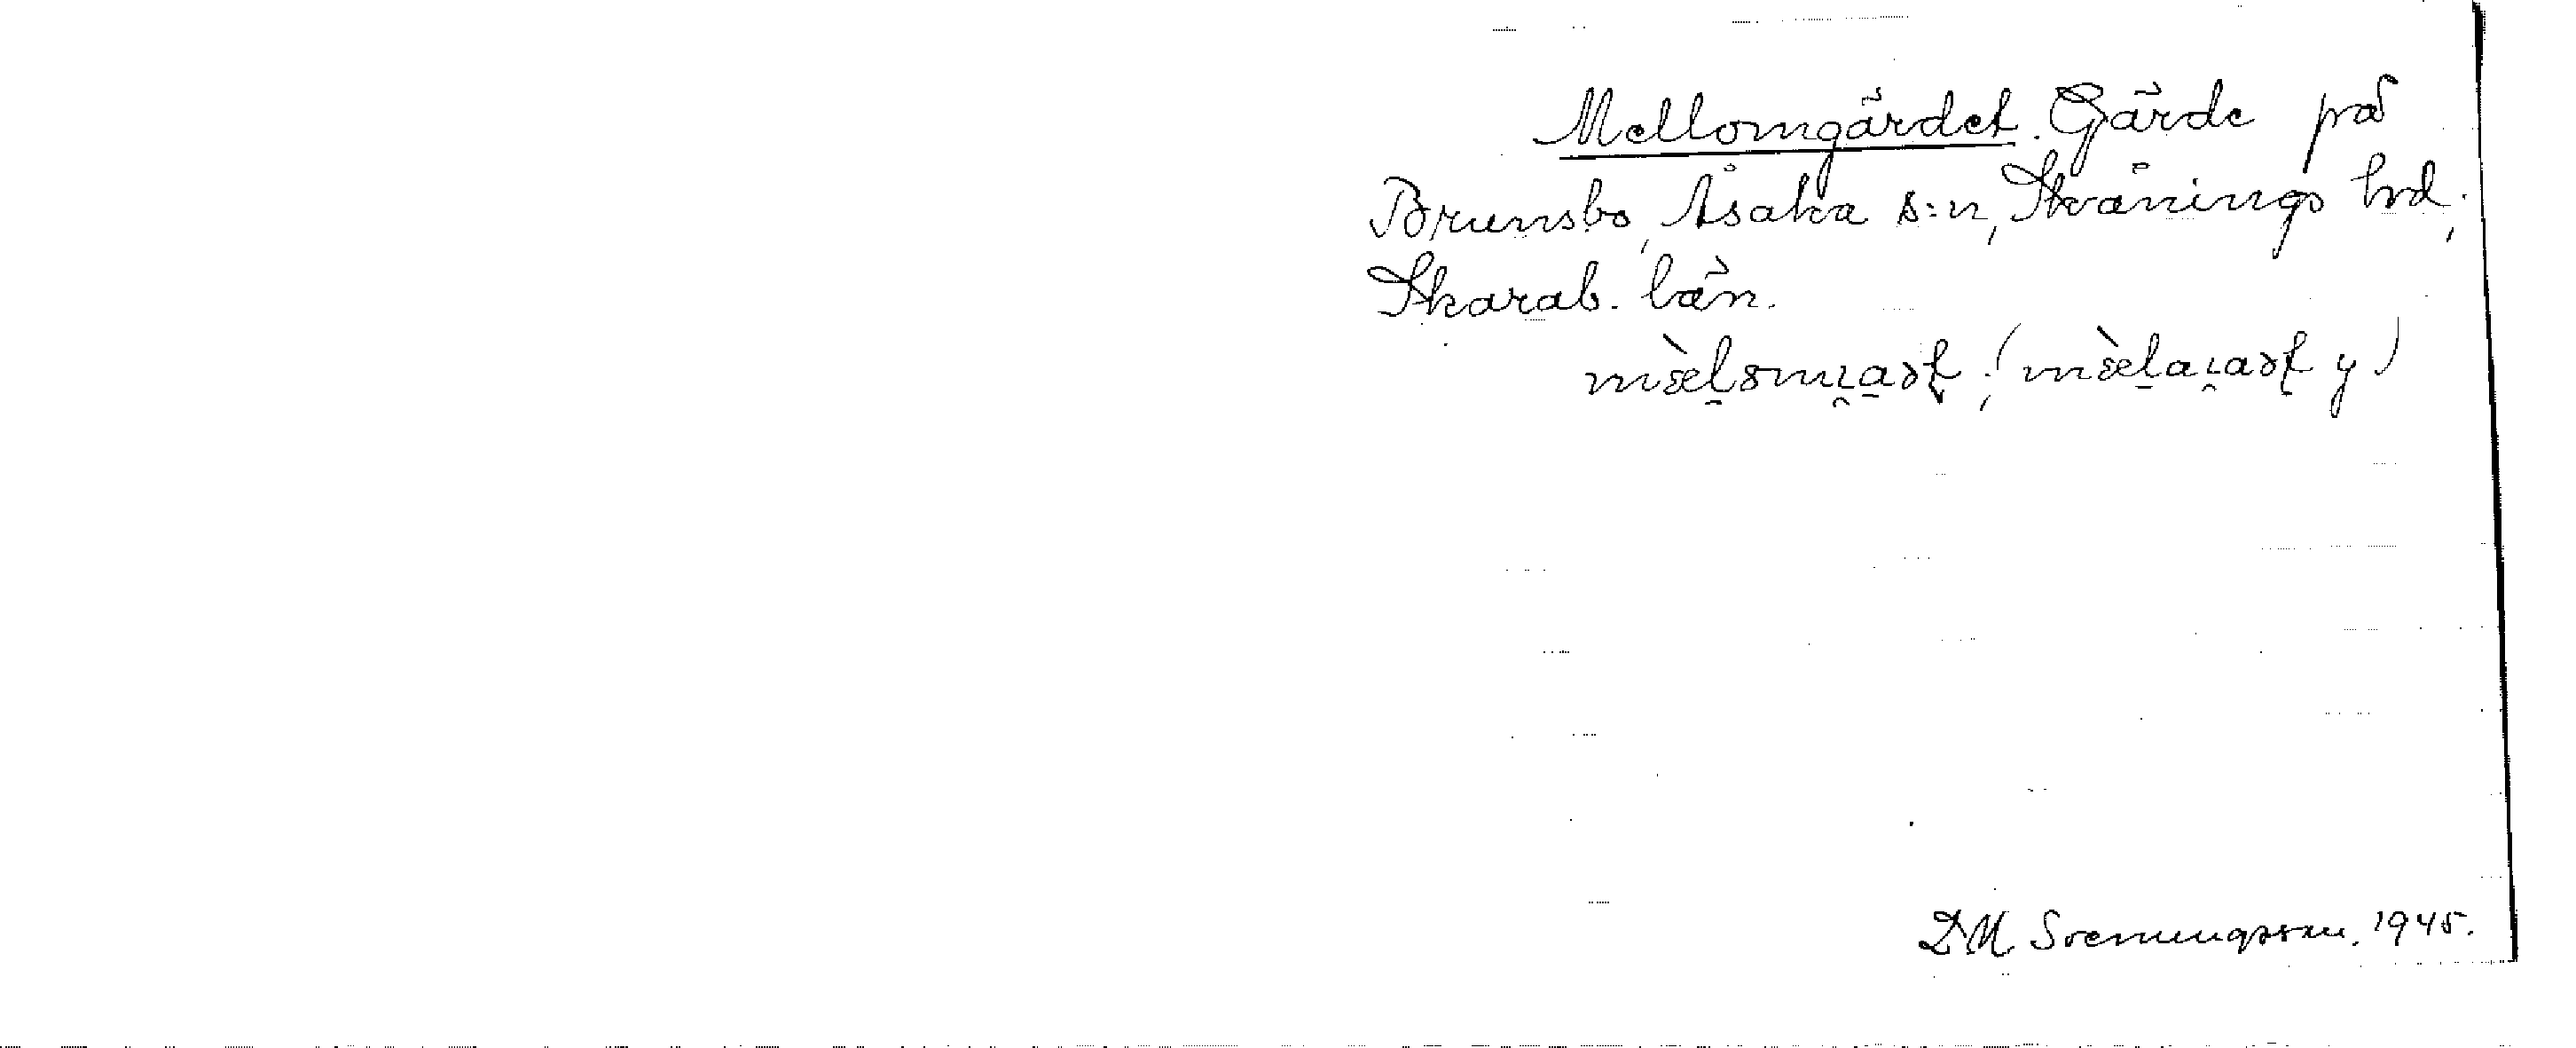 Mellomgärdet. Gärde på
Brunsbo, Åsaka s:n, Skånings hd,
Skarab. län.
D M Svenningsson. 1945.